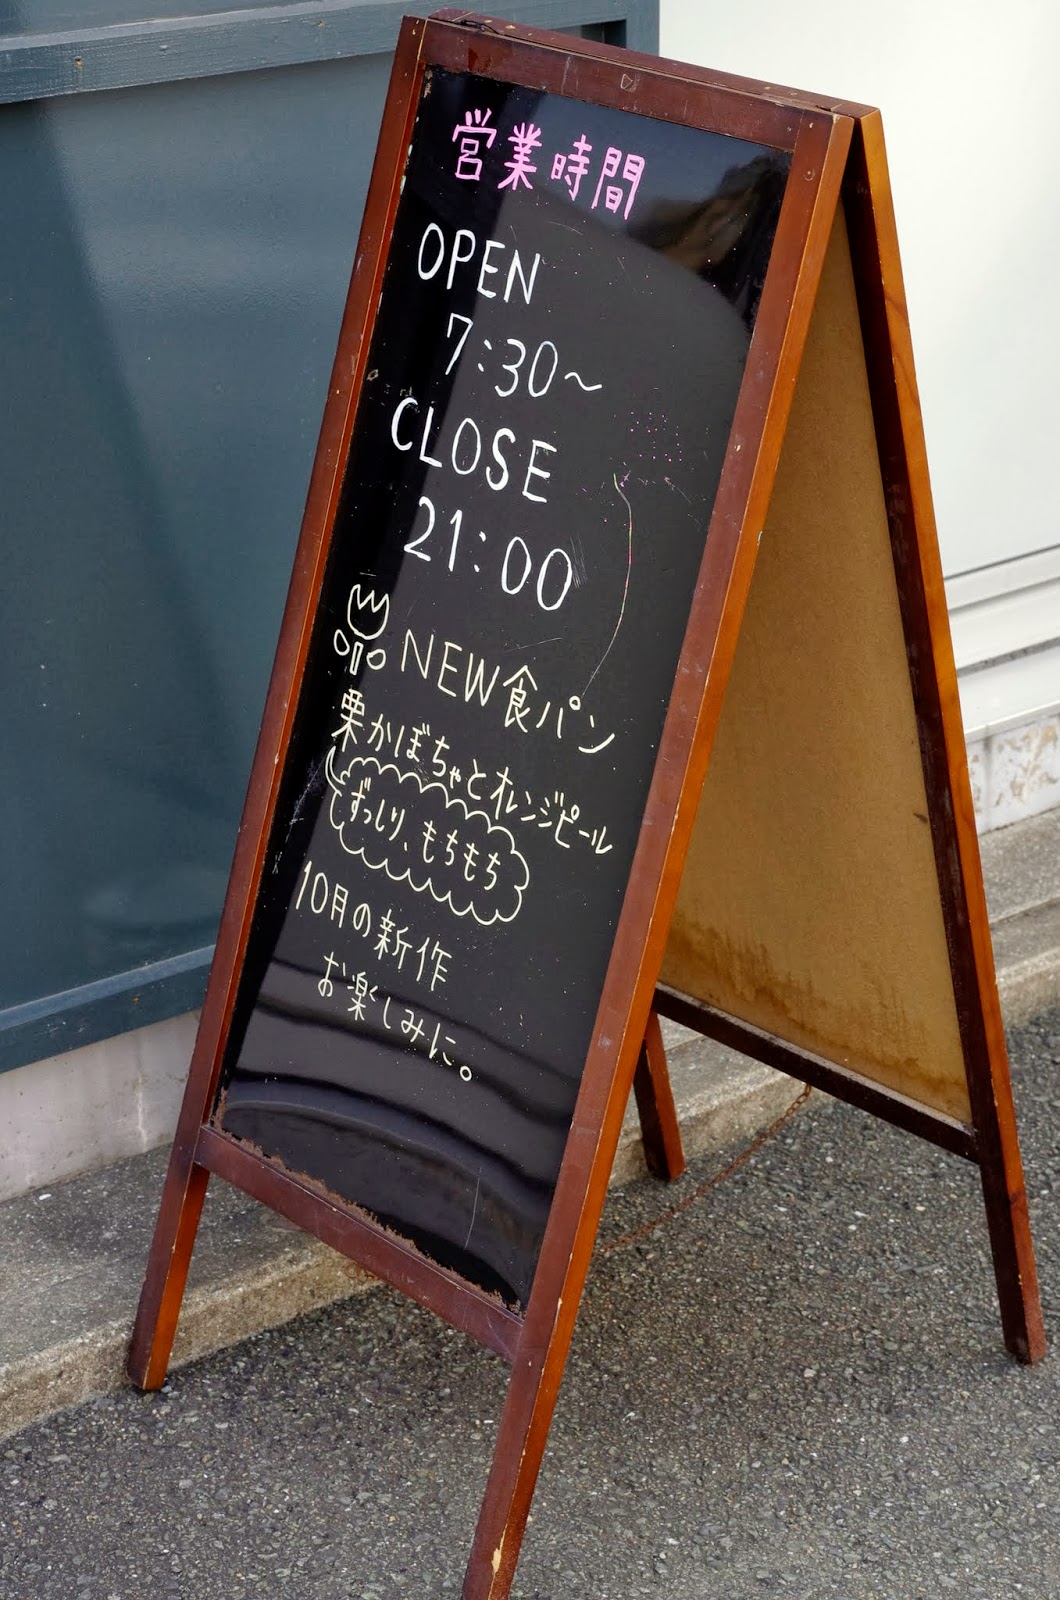 営業時間
OPEN
7:30～
CLOSE
21:00
NEW食パン
栗かぼちゃとオレンジピール
ずっしり、もちもち
10月の新作
お楽しみに。